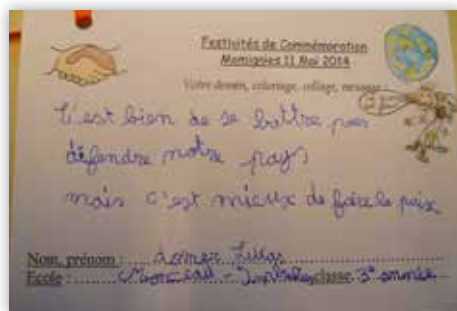 Festivités de Commémoration
Momignies 11 Mai 2014
Votre dessin, coloriage, collage, message :
C'est bien de se battre pour
défendre notre pays
mais c'est mieux de faire la paix
Nom, prénom :
Ecole : Monceau - classe 3e année